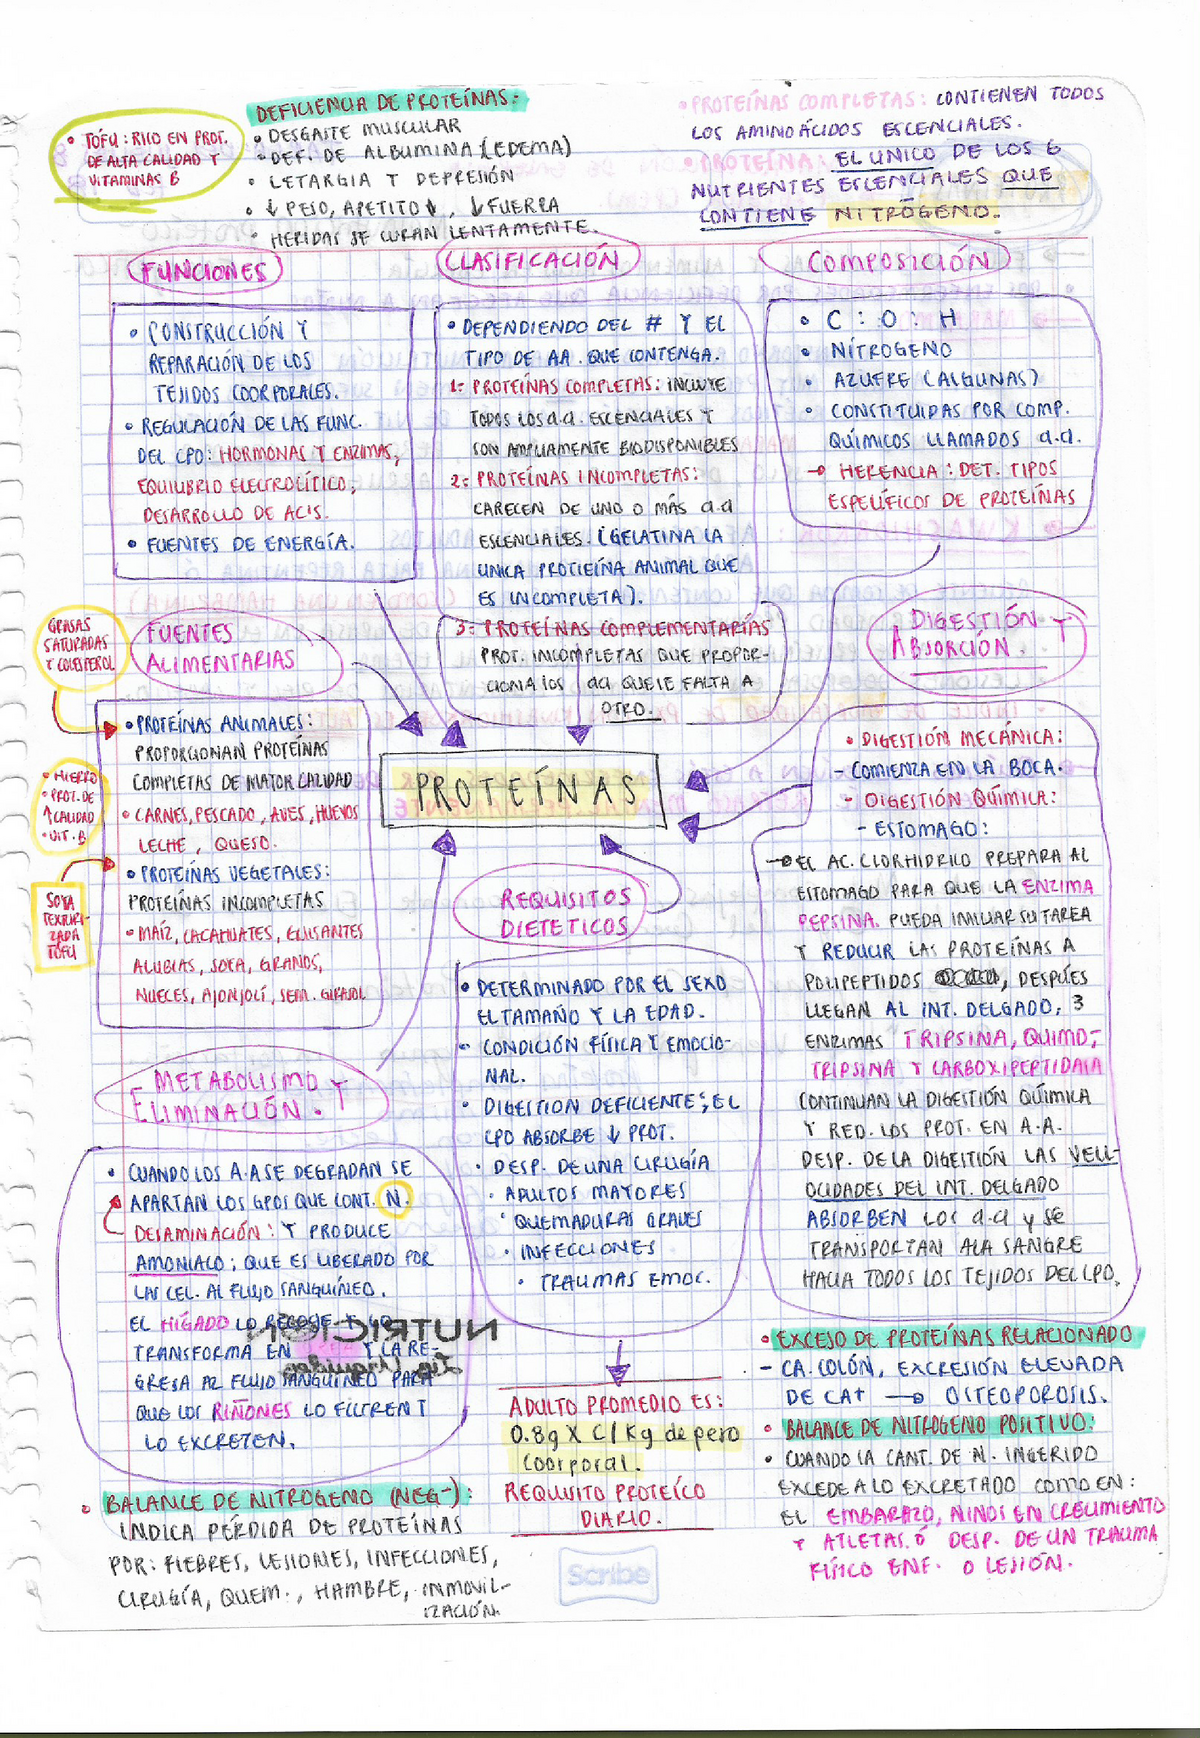 DEFICIENCIA DE PROTEÍNAS:
• DESGASTE MUSCULAR
• DEF. DE ALBUMINA (EDEMA)
• LETARGIA Y DEPRESIÓN
• ↓ PESO, APETITO ↓, ↓ FUERRA
• HERIDAS SE CURAN LENTAMENTE.
• TOFU: RICO EN PROT.
DE ALTA CALIDAD Y
VITAMINAS B
• PROTEÍNAS COMPLETAS: CONTIENEN TODOS
LOS AMINOÁCIDOS ESCENCIALES.
• PROTEÍNA: EL UNICO DE LOS 6
NUTRIENTES ESCENCIALES QUE
CONTIENE NITRÓGENO.
FUNCIONES
• CONSTRUCCIÓN Y
REPARACIÓN DE LOS
TEJIDOS COORPORALES.
• REGULACIÓN DE LAS FUNC.
DEL CPO: HORMONAS Y ENZIMAS,
EQUILIBRIO ELECTROLÍTICO,
DESARROLLO DE ACIS.
• FUENTES DE ENERGÍA.
CLASIFICACIÓN
• DEPENDIENDO DEL # Y EL
TIPO DE AA. QUE CONTENGA.
1: PROTEÍNAS COMPLETAS: INCLUYE
TODOS LOS a.a. ESCENCIALES Y
SON AMPLIAMENTE BIODISPONIBLES
2: PROTEÍNAS INCOMPLETAS:
CARECEN DE UNO O MÁS a.a
ESCENCIALES. (GELATINA LA
UNICA PROTIEÍNA ANIMAL QUE
ES INCOMPLETA).
3: PROTEÍNAS COMPLEMENTARÍAS
PROT. INCOMPLETAS QUE PROPOR-
CIONA los aa QUE LE FALTA A
OTRO.
COMPOSICIÓN
• C : O : H
• NITROGENO
• AZUFRE (ALGUNAS)
• CONSTITUIDAS POR COMP.
QUÍMICOS LLAMADOS a.a.
→ HERENCIA: DET. TIPOS
ESPECÍFICOS DE PROTEÍNAS
GRASAS
SATURADAS
Y COLESTEROL
FUENTES
ALIMENTARIAS
• PROTEÍNAS ANIMALES:
PROPORCIONAN PROTEÍNAS
COMPLETAS DE MAYOR CALIDAD
• CARNES, PESCADO, AVES, HUEVOS
LECHE, QUESO.
• PROTEÍNAS VEGETALES:
PROTEÍNAS INCOMPLETAS
• MAÍZ, CACAHUATES, GUISANTES
ALUBIAS, SOYA, GRANOS,
NUECES, AJONJOLÍ, SEM. GIRASOL
• HIERRO
• PROT. DE
↑ CALIDAD
• VIT. B
SOYA
TEXTURI-
ZADA
TOFU
PROTEÍNAS
DIGESTIÓN Y
ABSORCIÓN.
• DIGESTIÓN MECÁNICA:
- COMIENZA EN LA BOCA.
- DIGESTIÓN QUÍMICA:
- ESTOMAGO:
→ EL AC. CLORHIDRICO PREPARA AL
ESTOMAGO PARA QUE LA ENZIMA
PEPSINA. PUEDA INICIAR SU TAREA
Y REDUCIR LAS PROTEÍNAS A
POLIPEPTIDOS, DESPUÉS
LLEGAN AL INT. DELGADO, 3
ENZIMAS TRIPSINA, QUIMO-
TRIPSINA Y CARBOXIPEPTIDASA
CONTINUAN LA DIGESTIÓN QUÍMICA
Y RED. LOS PROT. EN A.A.
DESP. DE LA DIGESTIÓN LAS VELL-
OCIDADES DEL INT. DELGADO
ABSORBEN LOS a.a y SE
TRANSPORTAN A LA SANGRE
HACIA TODOS LOS TEJIDOS DEL CPO.
REQUISITOS
DIETETICOS
• DETERMINADO POR EL SEXO
EL TAMAÑO Y LA EDAD.
• CONDICIÓN FÍSICA Y EMOCIO-
NAL.
• DIGESTION DEFICIENTE; EL
CPO ABSORBE ↓ PROT.
• DESP. DE UNA CIRUGÍA
• ADULTOS MAYORES
• QUEMADURAS GRAVES
• INFECCIONES
• TRAUMAS EMOC.
ADULTO PROMEDIO ES:
0.8g X C/Kg de peso
coorporal.
REQUISITO PROTEÍCO
DIARIO.
METABOLISMO Y
ELIMINACIÓN.
• CUANDO LOS A.A SE DEGRADAN SE
APARTAN LOS GPOS QUE CONT. N.
DESAMINACIÓN: Y PRODUCE
AMONIACO; QUE ES LIBERADO POR
LAS CEL. AL FLUJO SANGUÍNEO.
EL HÍGADO LO RECOGE Y LO
TRANSFORMA EN Y LA RE-
GRESA AL FLUJO SANGUÍNEO PARA
QUE LOS RIÑONES LO FILTREN Y
LO EXCRETEN.
NUTRICIÓN
• BALANCE DE NITROGENO (NEG-):
INDICA PÉRDIDA DE PROTEÍNAS
POR: FIEBRES, LESIONES, INFECCIONES,
CIRUGÍA, QUEM., HAMBRE, INMOVIL-
IZACIÓN.
• EXCESO DE PROTEÍNAS RELACIONADO
- CA. COLÓN, EXCRESIÓN ELEVADA
DE CA+ → OSTEOPOROSIS.
• BALANCE DE NITROGENO POSITIVO:
• CUANDO LA CANT. DE N. INGERIDO
EXCEDE A LO EXCRETADO COMO EN:
EL EMBARAZO, NIÑOS EN CRECIMIENTO
Y ATLETAS. Ó DESP. DE UN TRAUMA
FÍSICO ENF. O LESIÓN.
Scribe